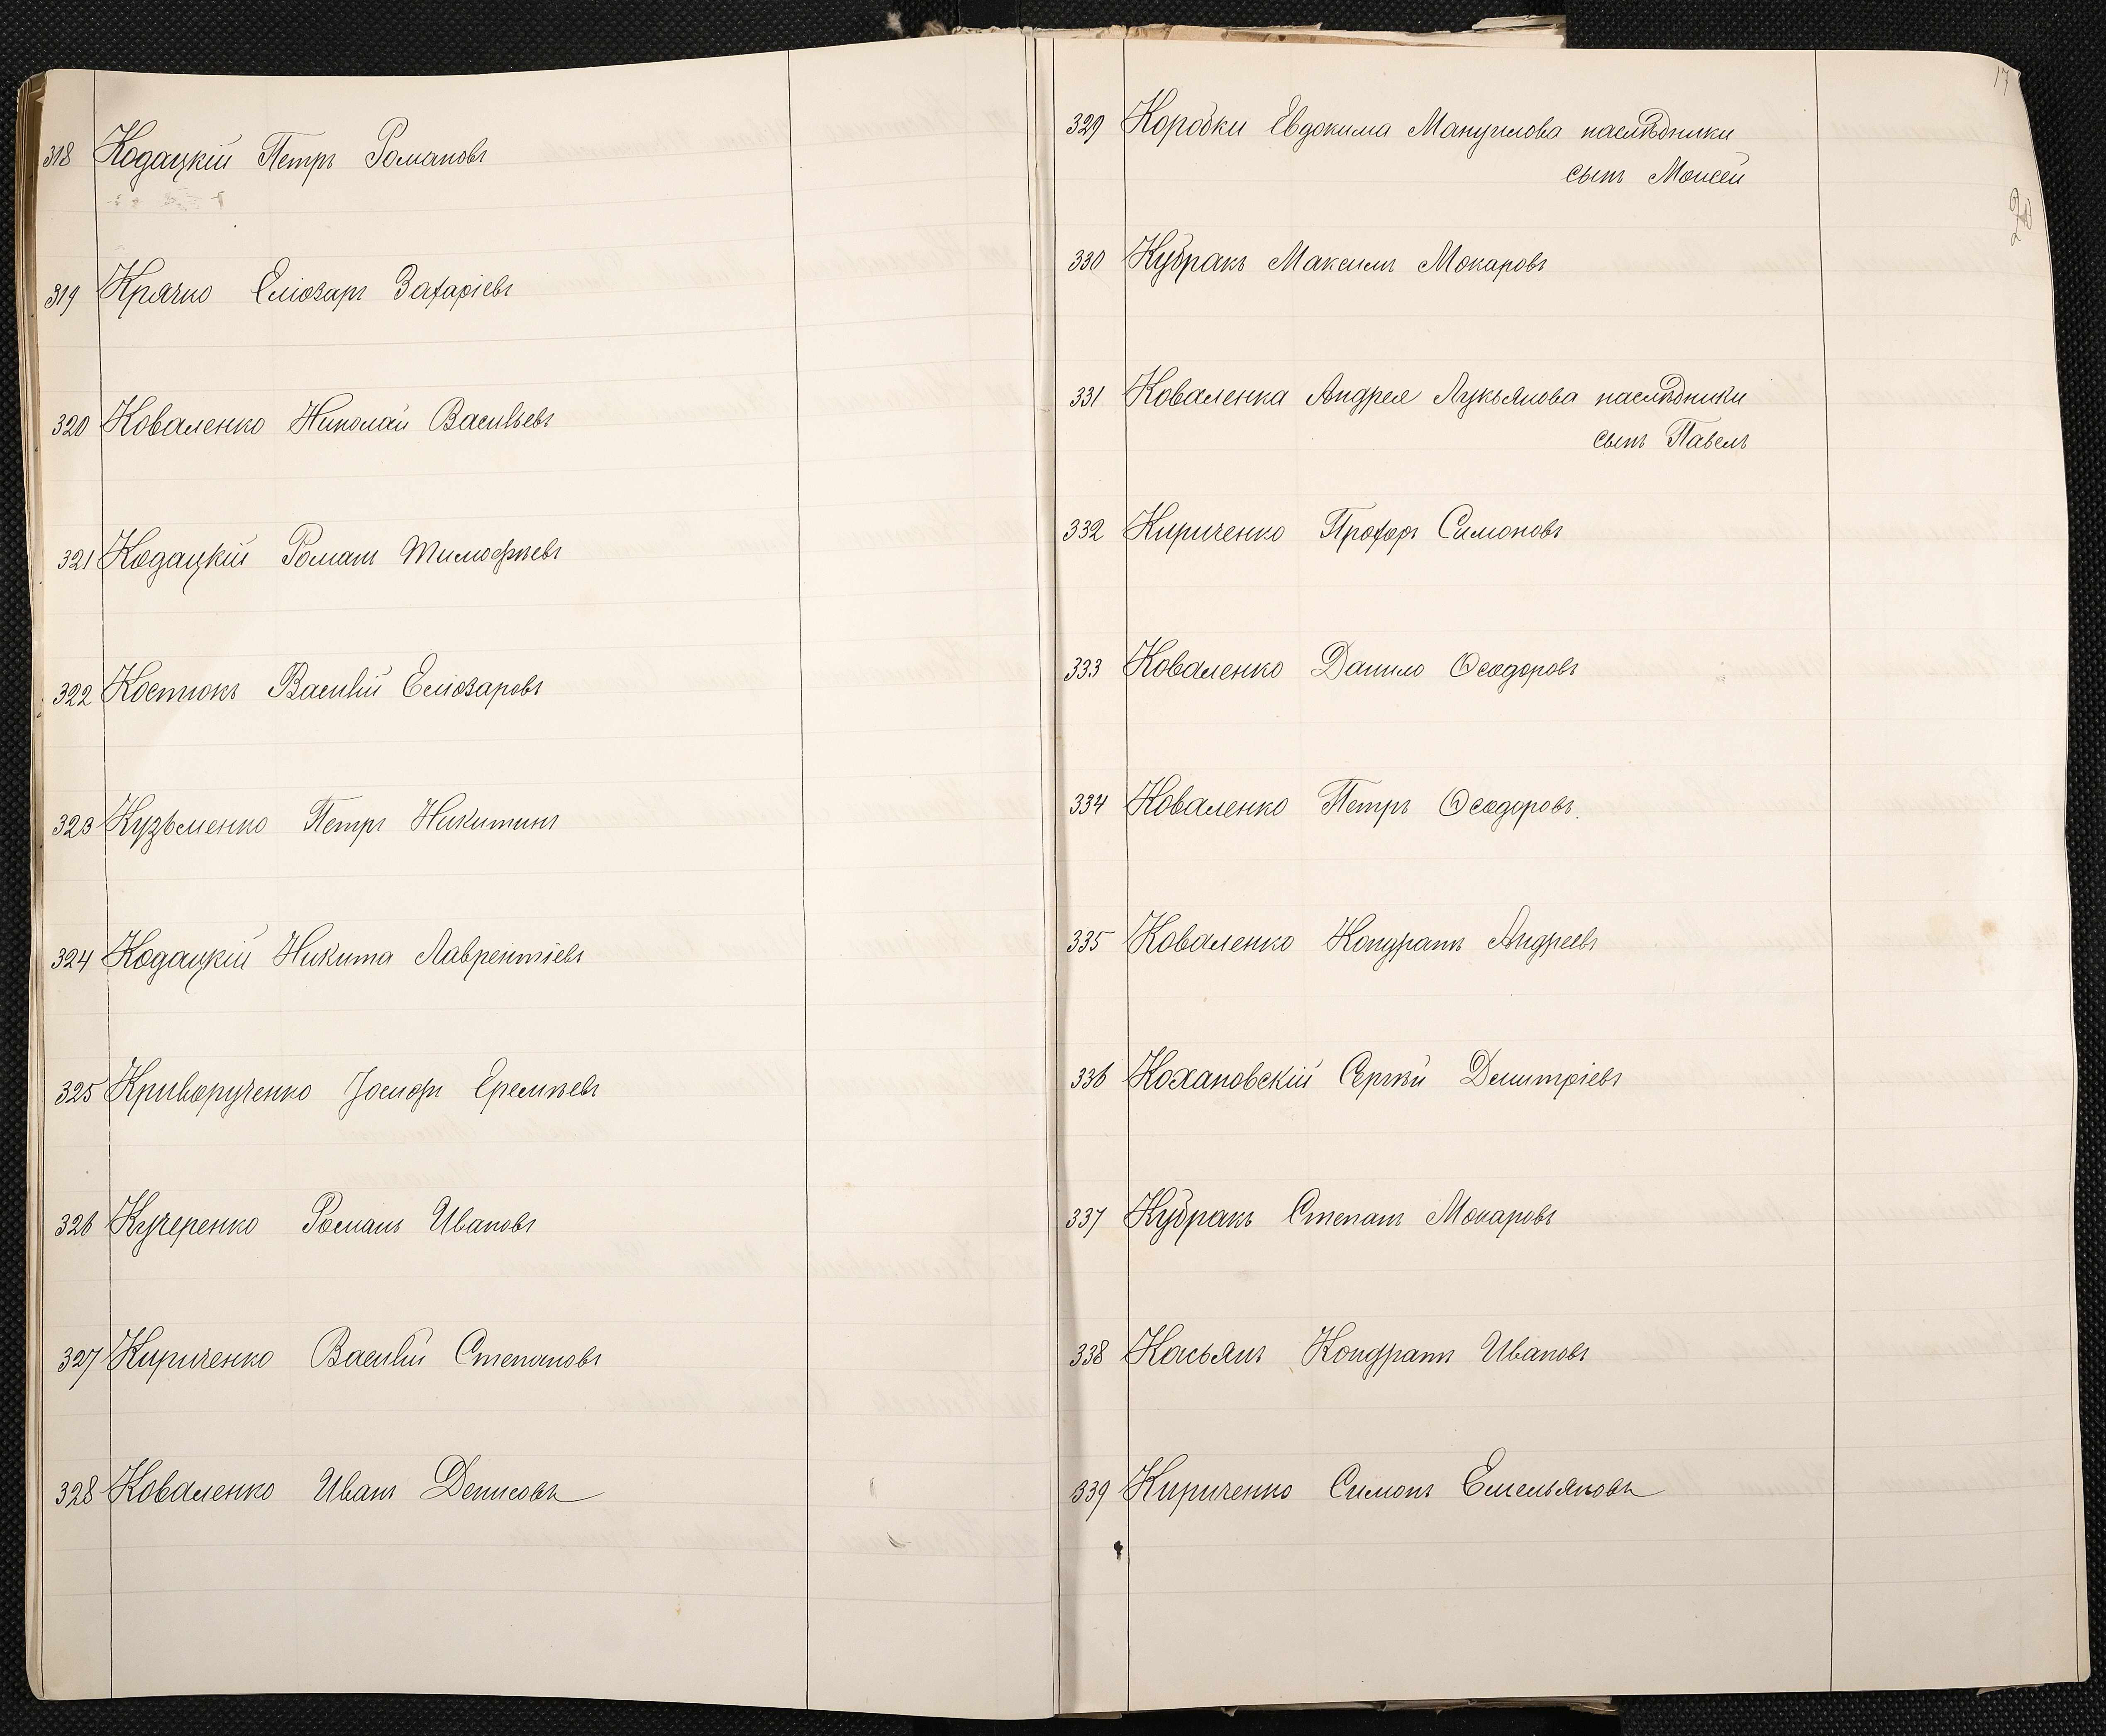 318 Кодацкій Петръ Романовъ
319 Крячко Еліозаръ Захаріевъ
320 Коваленко Николай Васильевъ
321 Кодацкій Романъ Тимофѣевъ
322 Костюкъ Василій Еліозаровъ
323 Кузьменко Петръ Никитинъ
324 Кодацкій Никита Лаврентіевъ
325 Криворученко Іосифъ Еремѣевъ
326 Кучеренко Романъ Ивановъ
327 Кириченко Василій Степановъ
328 Коваленко Иванъ Денисовъ
17
20
329 Коробки Евдокима Мануилова наслѣдники
сынъ Моисей
330 Кубракъ Максимъ Мокаровъ
331 Коваленка Андрея Лукьянова наслѣдники
сынъ Павелъ
332 Кириченко Прохоръ Симоновъ
333 Коваленко Данило Ѳеодоровъ
334 Коваленко Петръ Ѳеодоровъ.
335 Коваленко Кондратъ Андреевъ
336 Кохановскій Сергѣй Дмитріевъ
337 Кубракъ Степанъ Мокаровъ
338 Касьянъ Кондратъ Ивановъ
339 Кириченко Симонъ Емельяновъ